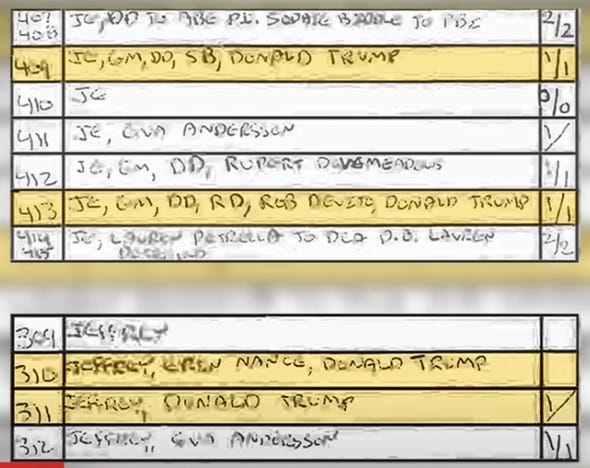 407 JE, DD TO ABE P.I. TO PBI 2/2
408
409 JE, GM, DD, SB, DONALD TRUMP 1/1
410 JE 0/0
411 JE, EVA ANDERSSON 1/
412 JE, GM, DD, RUPERT 1/1
413 JE, GM, DD, RD, ROB DONALD TRUMP 1/1
414 JE, LAUREN PETRELLA TO LAUREN 2/2
415
309 JEFFREY
310 JEFFREY, NANCE, DONALD TRUMP
311 JEFFREY, DONALD TRUMP 1/
312 JEFFREY, EVA ANDERSSON 1/1